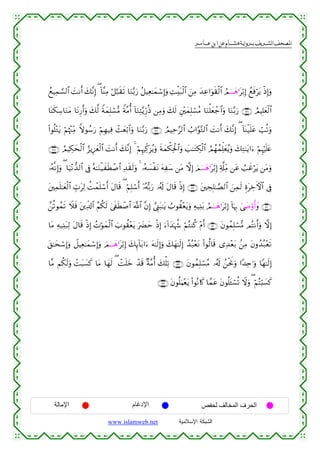 المصحف الشريف برواية هشام عن ابن عامر
وَإِذْ يَرْفَعُ إِبْرَٰهَـٰمُ ٱلْقَوَاعِدَ مِنَ ٱلْبَيْتِ وَإِسْمَـٰعِيلُ رَبَّنَا تَقَبَّلْ مِنَّآ ۖ إِنَّكَ أَنتَ ٱلسَّمِيعُ
ٱلْعَلِيمُ رَبَّنَا وَٱجْعَلْنَا مُسْلِمَيْنِ لَكَ وَمِن ذُرِّيَّتِنَآ أُمَّةً مُّسْلِمَةً لَّكَ وَأَرْنَا مَنَاسِكَنَا
وَتُبْ عَلَيْنَآ ۖ إِنَّكَ أَنتَ ٱلتَّوَّابُ ٱلرَّحِيمُ رَبَّنَا وَٱبْعَثْ فِيهِمْ رَسُولًا مِّنْهُمْ يَتْلُوا۟
عَلَيْهِمْ ءَايَـٰتِكَ وَيُعَلِّمُهُمُ ٱلْكِتَـٰبَ وَٱلْحِكْمَةَ وَيُزَكِّيهِمْ ۚ إِنَّكَ أَنتَ ٱلْعَزِيزُ ٱلْحَكِيمُ
وَمَن يَرْغَبُ عَن مِّلَّةِ إِبْرَٰهَـٰمَ إِلَّا مَن سَفِهَ نَفْسَهُۥ ۚ وَلَقَدِ ٱصْطَفَيْنَـٰهُ فِى ٱلدُّنْيَا ۖ وَإِنَّهُۥ
فِى ٱلْـَٔاخِرَةِ لَمِنَ ٱلصَّـٰلِحِينَ إِذْ قَالَ لَهُۥ رَبُّهُۥٓ أَسْلِمْ ۖ قَالَ أَسْلَمْتُ لِرَبِّ ٱلْعَـٰلَمِينَ
وَأَوْصَىٰ بِهَآ إِبْرَٰهَـٰمُ بَنِيهِ وَيَعْقُوبُ يَـٰبَنِىَّ إِنَّ ٱللَّهَ ٱصْطَفَىٰ لَكُمُ ٱلدِّينَ فَلَا تَمُوتُنَّ
إِلَّا وَأَنتُم مُّسْلِمُونَ أَمْ كُنتُمْ شُهَدَآءَ إِذْ حَضَرَ يَعْقُوبَ ٱلْمَوْتُ إِذْ قَالَ لِبَنِيهِ مَا
تَعْبُدُونَ مِنۢ بَعْدِى قَالُوا۟ نَعْبُدُ إِلَـٰهَكَ وَإِلَـٰهَ ءَابَآئِكَ إِبْرَٰهَـٰمَ وَإِسْمَـٰعِيلَ وَإِسْحَـٰقَ
إِلَـٰهًا وَٰحِدًا وَنَحْنُ لَهُۥ مُسْلِمُونَ تِلْكَ أُمَّةٌ قَدْ خَلَتْ ۖ لَهَا مَا كَسَبَتْ وَلَكُم مَّا
كَسَبْتُمْ ۖ وَلَا تُسْـَٔلُونَ عَمَّا كَانُوا۟ يَعْمَلُونَ
الحرف المخالف لحفص الإدغام الإمالة
الشبكة الإسلامية www.islamweb.net